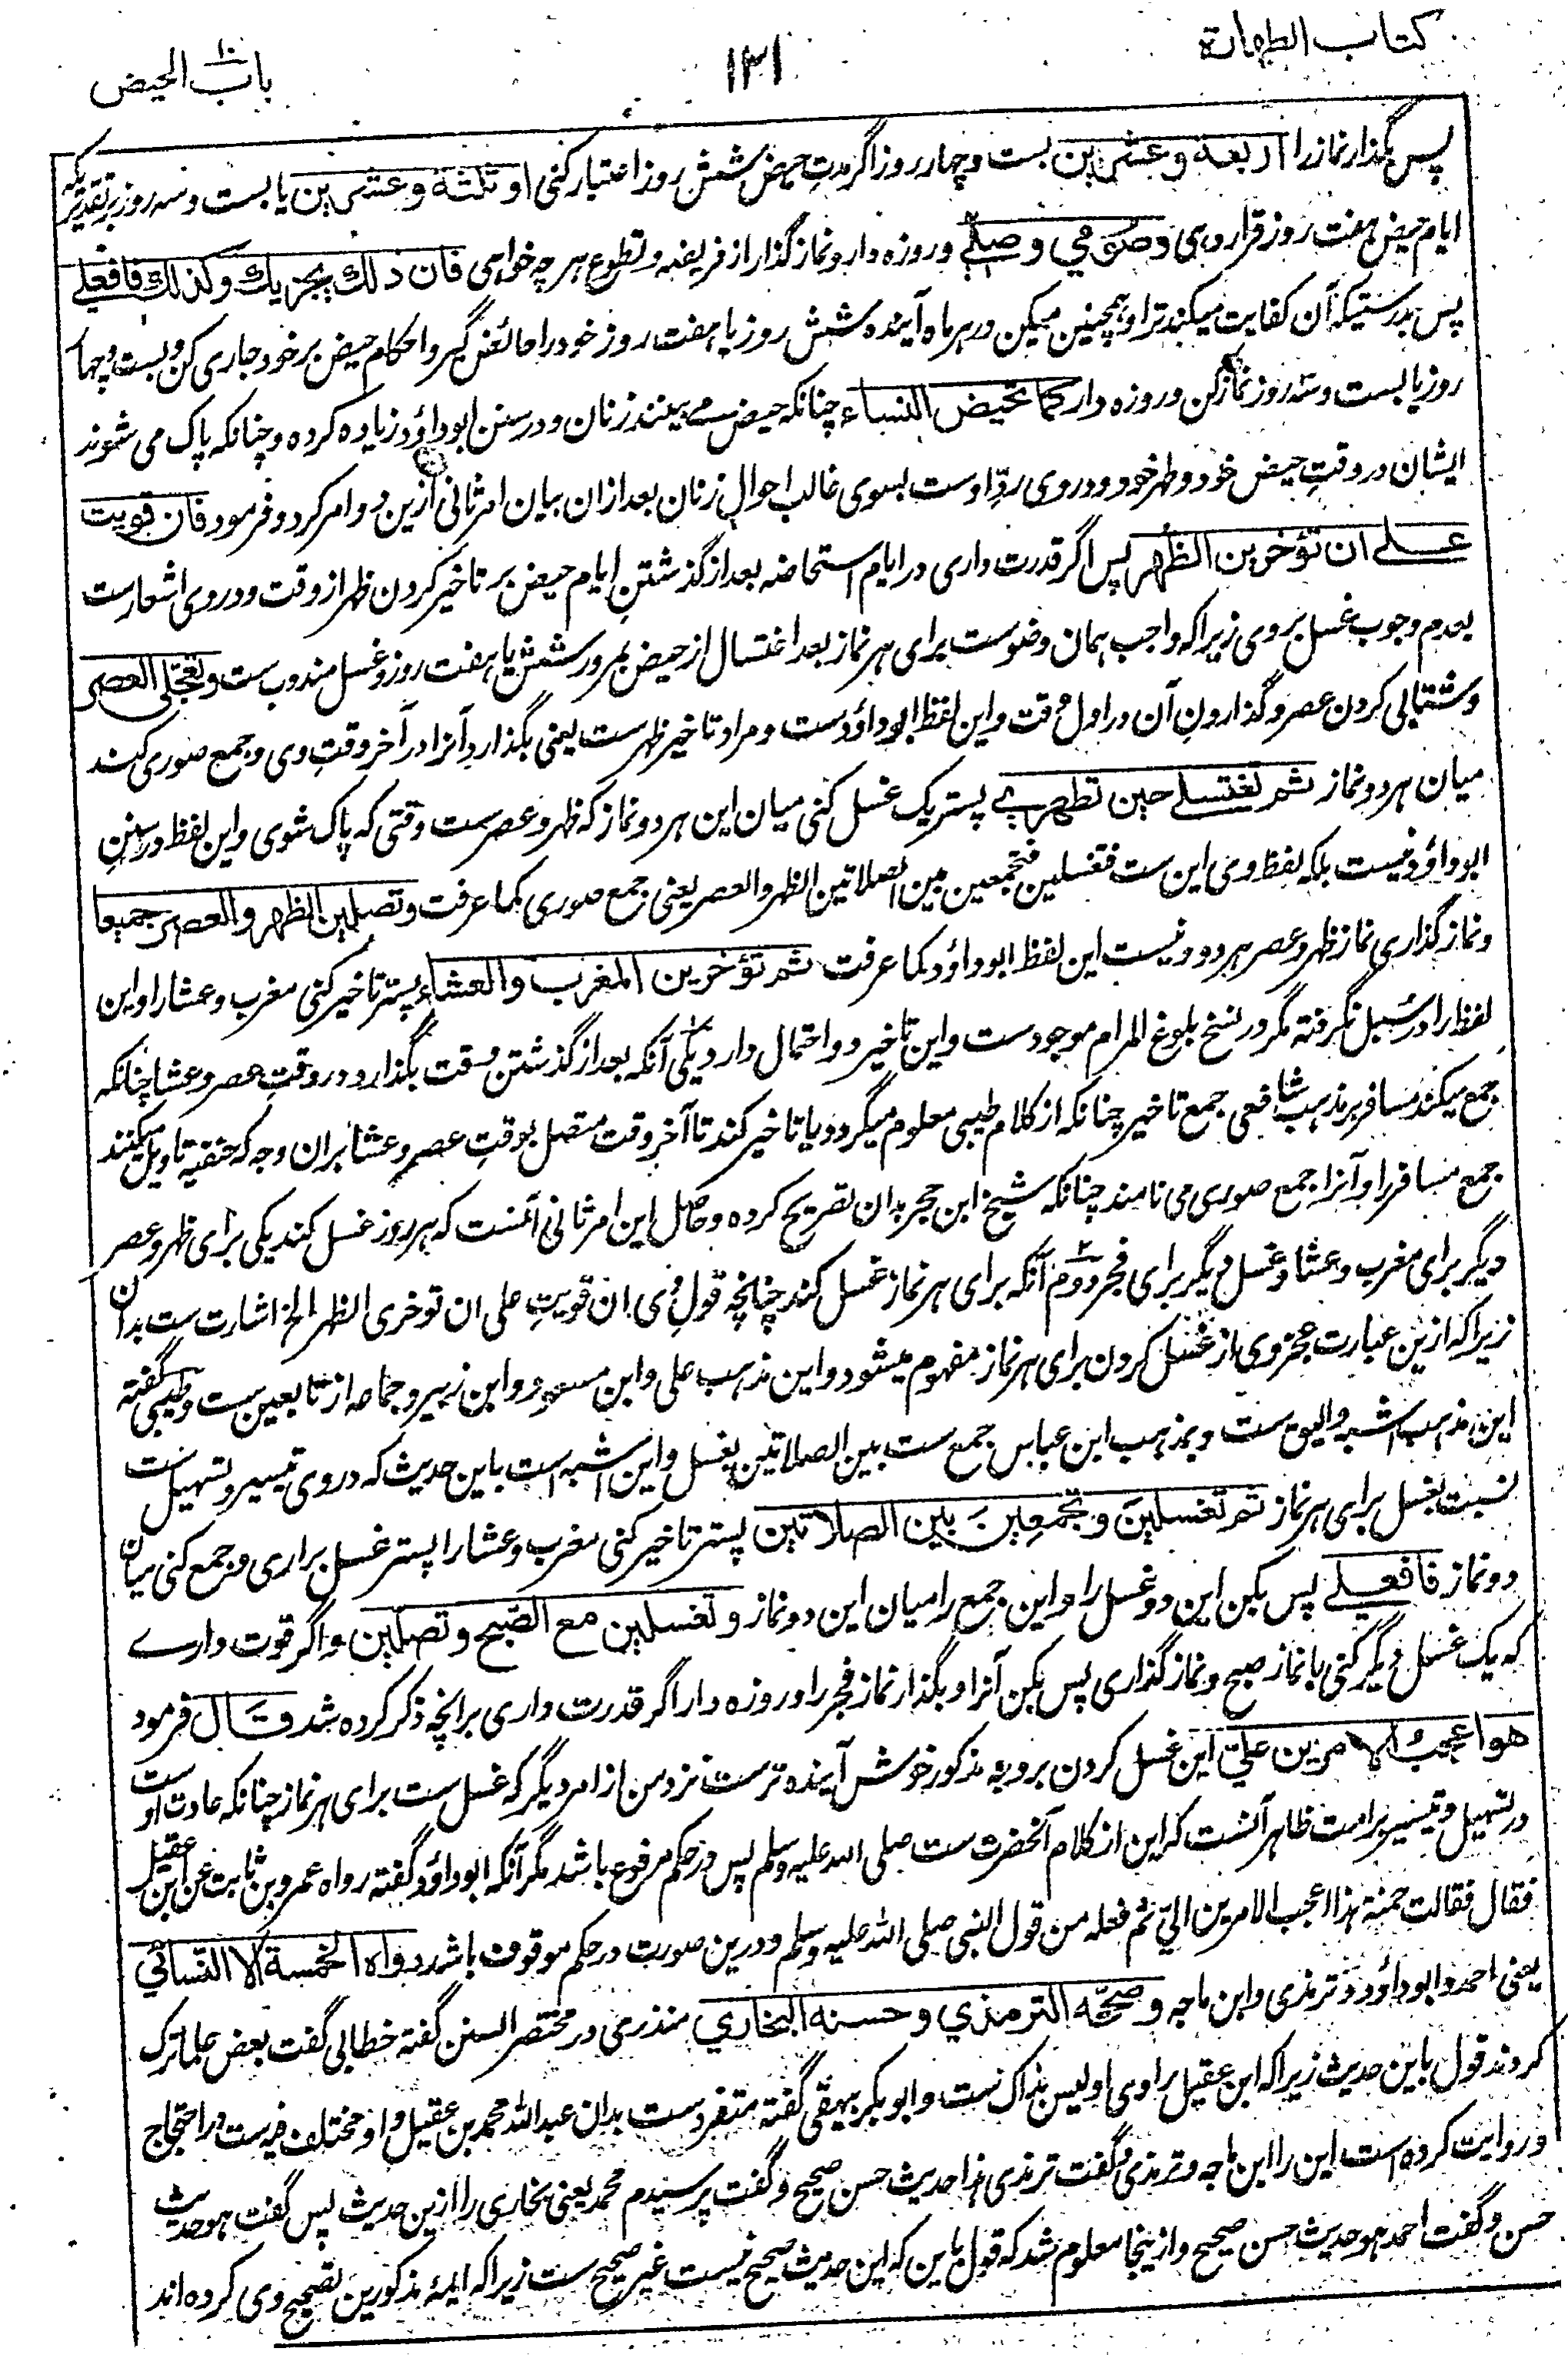 کتاب الطهارة
۱۳۱
باب الحیض
پس بگذار نماز را اربعة وعشرین بست و چهار روز اگر مدت حیض شش روز اعتبار کنی او ثلثة وعشرین یا بست و سه روز بر تقدیریکه
ایام حیض هفت روز قرار دهی وصومی وصلی و روزه دار و نماز گذار از فریضه و تطوع هر چه خواهی فان ذلك یجزیك وکذلك فافعلی
پس بدرستیکه آن کفایت میکند ترا و همچنین میکن در هر ماه آینده شش روز یا هفت روز خود را حائض گیر و احکام حیض بر خود جاری کن و بست و چهار
روز یا بست و سه روز نماز کن و روزه دار کما تحیض النساء چنانکه حیض مے بینند زنان و در سنن ابوداؤد زیاده کرده و چنانکه پاک می شوند
ایشان در وقتِ حیض خود و طهر خود و در وی ردِّ اوست بسوی غالب احوالِ زنان بعد ازان بیان امر ثانی ازین دو امر کرد و فرمود فان قویت
علے ان تؤخرین الظُهر پس اگر قدرت داری در ایام استحاضه بعد از گذشتنِ ایام حیض بر تاخیر کردن ظهر از وقت و در وی اشعارست
بعدم وجوب غسل بر وی زیرا که واجب همان وضوست برای هر نماز بعد اغتسال از حیض بمرور شش یا هفت روز و غسل مندوب ست وتعجّلی العصر
و شتابی کردن عصر و گذاردن آن در اول وقت و این لفظ ابوداؤدست و مراد تاخیر ظهرست یعنی بگذارد آنرا در آخر وقتِ وی و جمع صوری کند
میان هر دو نماز ثم تغتسلے حین تطهرے پستر یک غسل کنی میان این هر دو نماز که ظهر و عصرست وقتی که پاک شوی و این لفظ در سننِ
ابوداؤد نیست بلکه لفظ وی این ست فتغسلین فتجمعین بین الصلاتین الظهر والعصر یعنی جمع صوری کما عرفت وتصلین الظهر والعصر جمیعا
و نماز گذاری نماز ظهر و عصر هر دو و نیست این لفظ ابوداؤد کما عرفت ثم تؤخرین المغرب والعشاء پستر تاخیر کنی مغرب و عشا را و این
لفظ را در سُبل نگرفته مگر در نسخ بلوغ المرام موجودست و این تاخیر دو احتمال دارد یکی آنکه بعد از گذشتن وقت بگذارد و در وقتِ عصر و عشا چنانکه
جمع میکند مسافر بر مذهب شافعی جمع تاخیر چنانکه از کلام طیبی معلوم میگردد یا تاخیر کند تا آخر وقت متصل بوقتِ عصر و عشا بران وجه که حنفیه تاویل میکنند
جمع مسافر را و آنرا جمع صوری می نامند چنانکه شیخ ابن حجر بدان تصریح کرده و حاصل این امر ثانی آنست که هر روز غسل کند یکی برای ظهر و عصر
دیگر برای مغرب و عشا و غسل دیگر برای فجر دوم آنکه برای هر نماز غسل کند چنانچه قول وی ان قویتِ علی ان توخری الظهر الخ اشارت ست بدان
زیرا که ازین عبارت عجز وی از غسل کردن برای هر نماز مفهوم میشود و این مذهب علی و ابن مسعود و ابن زبیر و جماعه از تابعین ست و طیبی گفته
این مذهب اشبه و الیق ست و بمذهب ابن عباس جمع ست بین الصلاتین بغسل و این اشبه است باین حدیث که در وی تیسیر و تسهیل ست
نسبت بغسل برای هر نماز ثم تغسلینَ وتجمعِینَ بین الصلاتین پستر تاخیر کنی مغرب و عشا را پستر غسل براری و جمع کنی میان
دو نماز فافعلے پس بکن این دو غسل را و این جمع را میان این دو نماز وتغسلین مع الصّبح وتصلین و اگر قوت دارے
که یک غسل دیگر کنی با نماز صبح و نماز گذاری پس بکن آنرا و بگذار نماز فجر را و روزه دار اگر قدرت داری بر آنچه ذکر کرده شد قال فرمود
هو اعجب الامرین علیّ این غسل کردن بر وجه مذکور خوش آینده ترست نزد من از امر دیگر که غسل ست برای هر نماز چنانکه عادت اوست
در تسهیل و تیسیر بر امت ظاهر آنست که این از کلام آنحضرت ست صلی الله علیه وسلم پس در حکم مرفوع باشد مگر آنکه ابوداؤد گفته رواه عمرو بن ثابت عن ابن عقیل
فقال فقالت حمنة هذا اعجب الامرین الیّ ثم فعله من قول النبی صلی الله علیه وسلم و درین صورت در حکم موقوف باشد رواه الخمسة الا النسائي
یعنی احمد و ابوداؤد و ترمذی و ابن ماجه وصححه الترمذي وحسنه البخاري منذری در مختصر السنن گفته خطابی گفت بعض علما ترک
کردند قول باین حدیث زیرا که ابن عقیل راوی او لیس بذاک ست و ابوبکر بیهقی گفته متفردست بدان عبدالله محمد بن عقیل و او مختلف فیه ست در احتجاج
و روایت کرده است این را ابن ماجه و ترمذی و گفت ترمذی هذا حدیث حسن صحیح و گفت پرسیدم محمد یعنی بخاری را ازین حدیث پس گفت هو حدیث
حسن و گفت احمد هو حدیث حسن صحیح و ازینجا معلوم شد که قول باین که این حدیث صحیح نیست غیر صحیح ست زیرا که ایمهٔ مذکورین تصحیح وی کرده اند